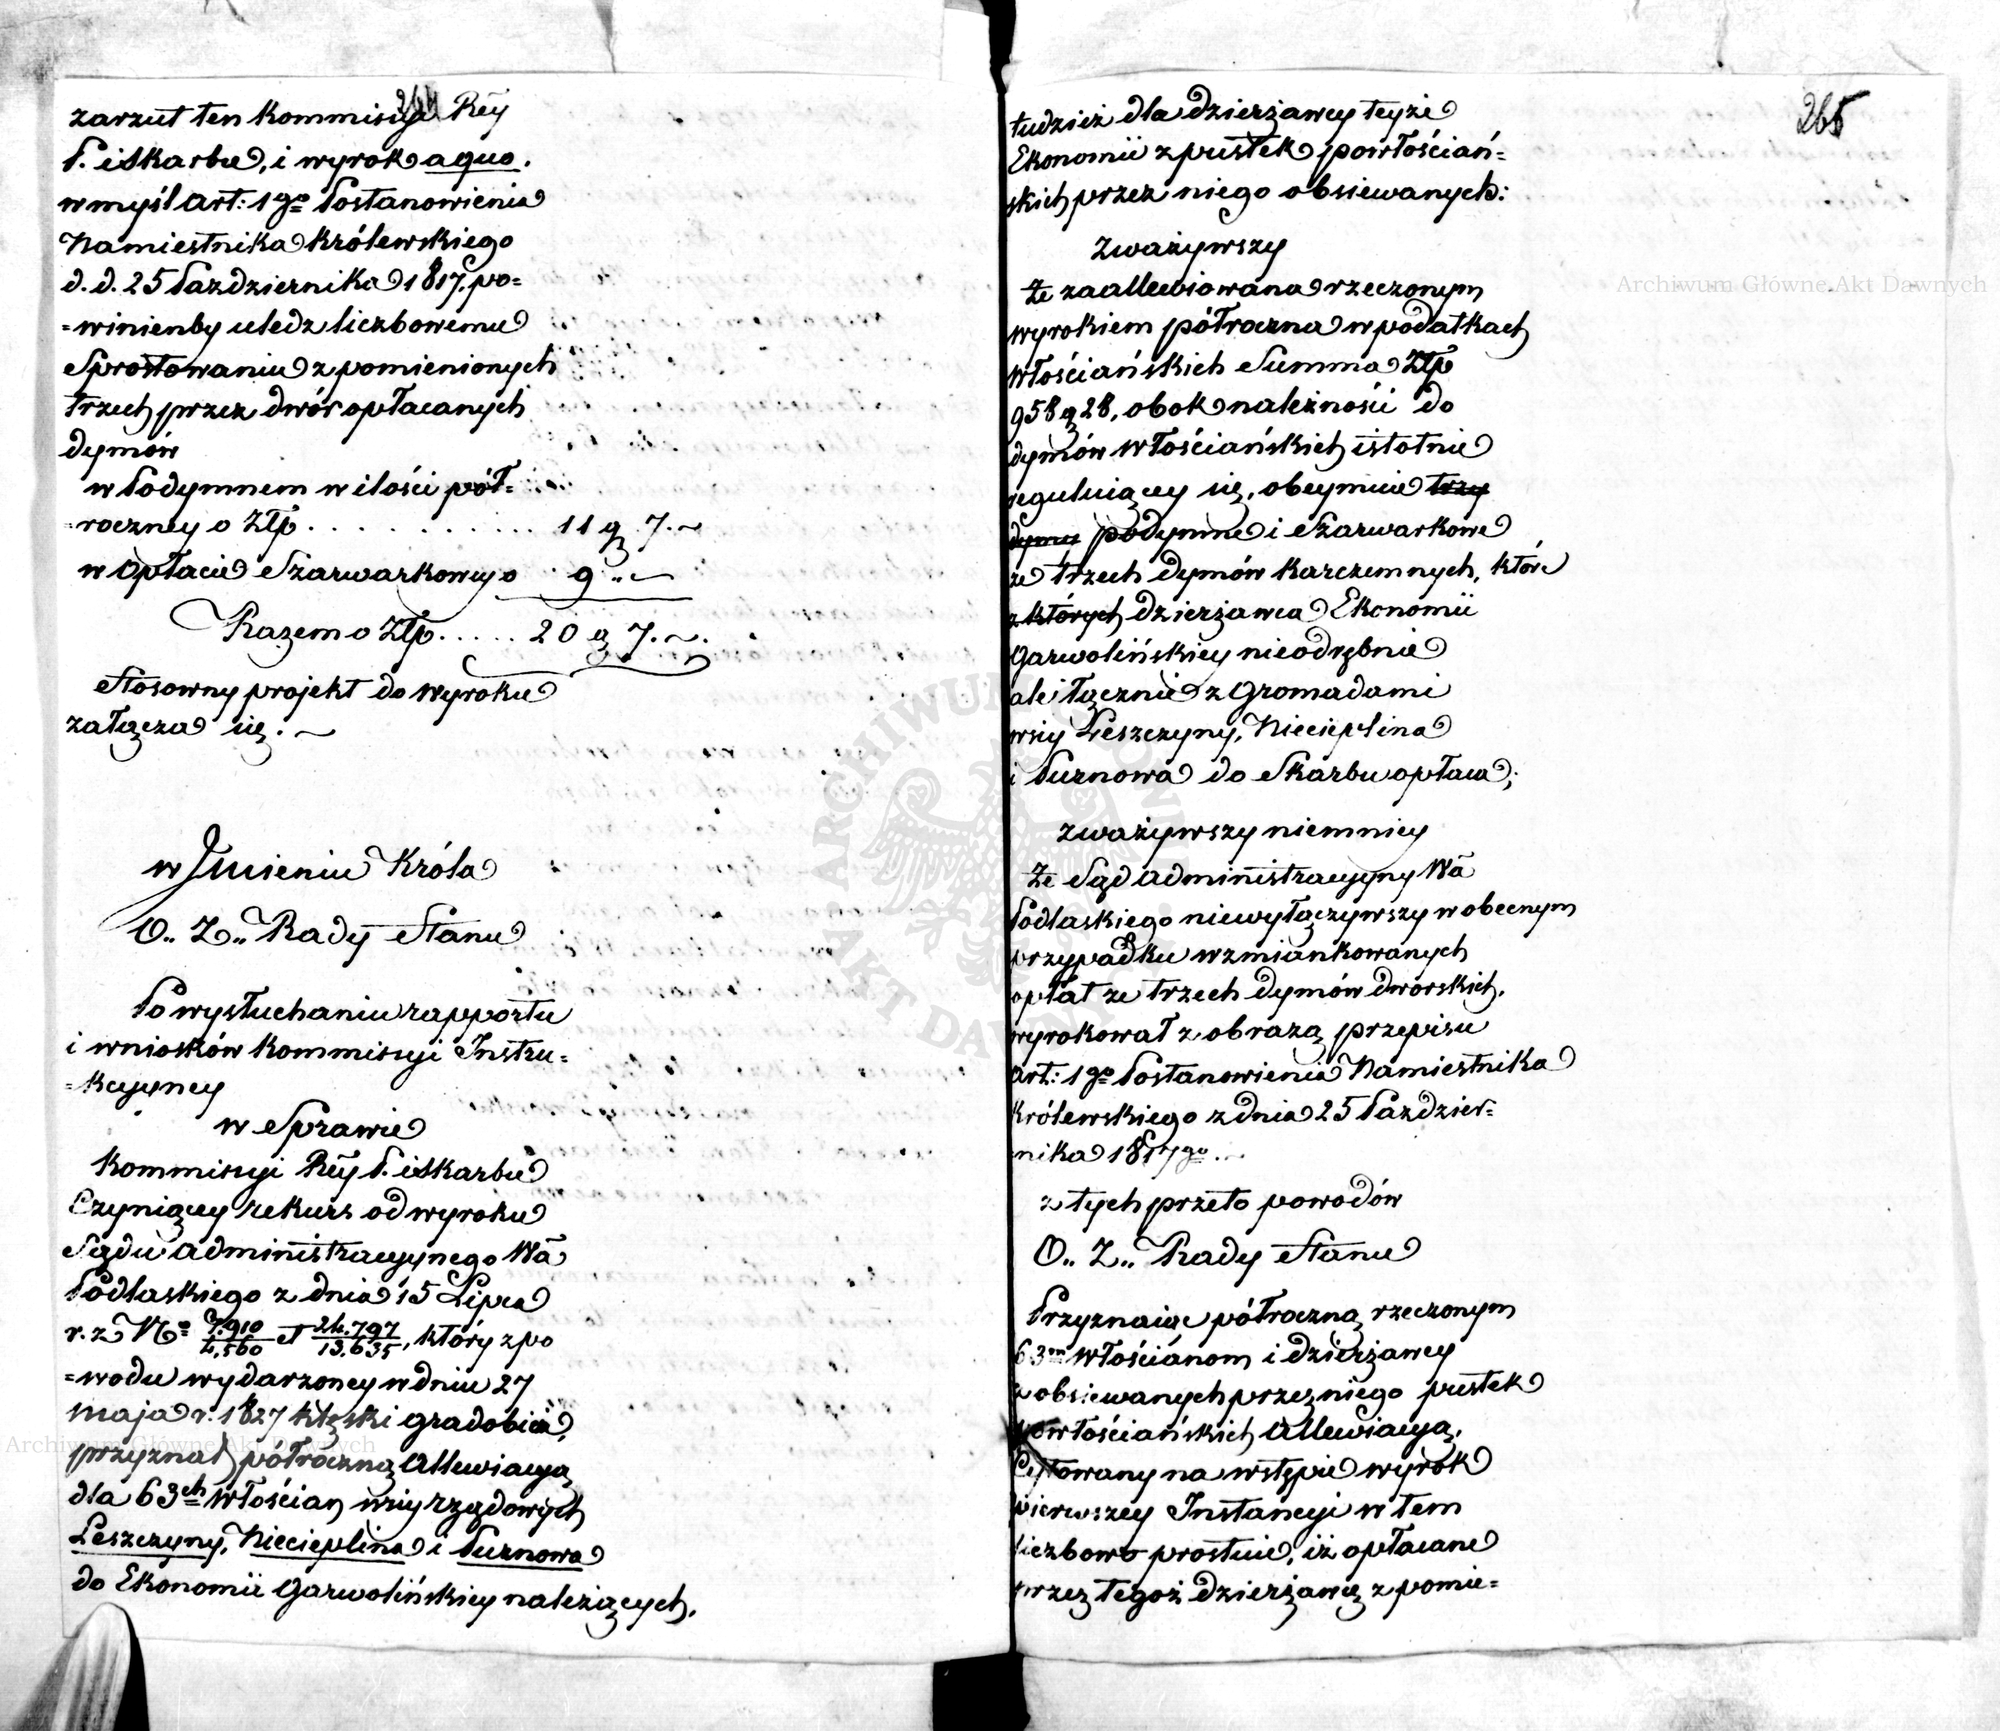 264
zarzut ten Kommissya Rey
P. i Skarbu, i wyrok a quo,
w myśl Art: 1go Postanowienia
Namiestnika Królewskiego
d. d. 25 Października 1817, po=
=winienby uledz liczbowemu
Sprostowaniu z pomienionych
trzech przez dwór opłacanych
dymów
w Podymnem w ilości pół=
=roczney o Złp. . . . . . . . . . 11 g 7. ~
w Opłacie Szarwarkowey o .. 9 " ~
Razem o Złp. . . . . 20 g 7. ~.
Stosowny projekt do Wyroku
załącza się. ~
w Jmieniu Króla
O.. Z.. Rady Stanu
Po wysłuchaniu rapportu
i wniosków Kommissyi Instru=
=kcyyney
w Sprawie
Kommissyi Rey P. i Skarbu
Czyniącey rekurs od wyroku
Sądu Administracyynego Wā
Podlaskiego z dnia 15 Lipca
r. z No 7.910/4.560 et 24.797/13.635, który z po
=wodu wydarzoney w dniu 27
Maja r. 1827 klęski gradobicia,
przyznał półroczną Allewiacyą
dla 63ch Włościan wsiy rządowych
Leszczyny, Niecieplina i Puznowa
do Ekonomii Garwolińskiey należących,
265
tudzież dla dzierżawcy teyże
Ekonomii z pustek powłościań=
skich przez niego obsiewanych:
Zważywszy
Że zaallewiowana rzeczonym
wyrokiem półroczna w podatkach
Włościańskich Summa Złp
958 g 28, obok należności do
dymów Włościańskich istotnie
reguluiącey się, obeymuie trzy
dymy podymne i Szarwarkowe
ze trzech dymów karczemnych, które
z których dzierżawca Ekonomii
Garwolińskiey nieodrębnie
ale łącznie z Gromadami
wsiy Leszczyny, Niecieplina
i Puznowa do Skarbu opłaca;
zważywszy niemniey
Że Sąd Administracyyny Wā
Podlaskiego niewyłączywszy w obecnym
przypadku wzmiankowanych
opłat ze trzech dymów dworskich,
wyrokował z obrazą przepisu
Art: 1go Postanowienia Namiestnika
Królewskiego z dnia 25 Paździer=
nika 1817go. ~
z tych przeto powodów
O.. Z.. Rady Stanu
Przyznaiąc półroczną rzeczonym
63m Włościanom i dzierżawcy
z obsiewanych przez niego pustek
powłościańskich Allewiacyą,
Cytowany na wstępie wyrok
pierwszey Instancyi w tem
liczbowo prostuie, iż opłacane
przez tegoż dzierżawcę z pomie=
Archiwum Główne Akt Dawnych
Archiwum Główne Akt Dawnych